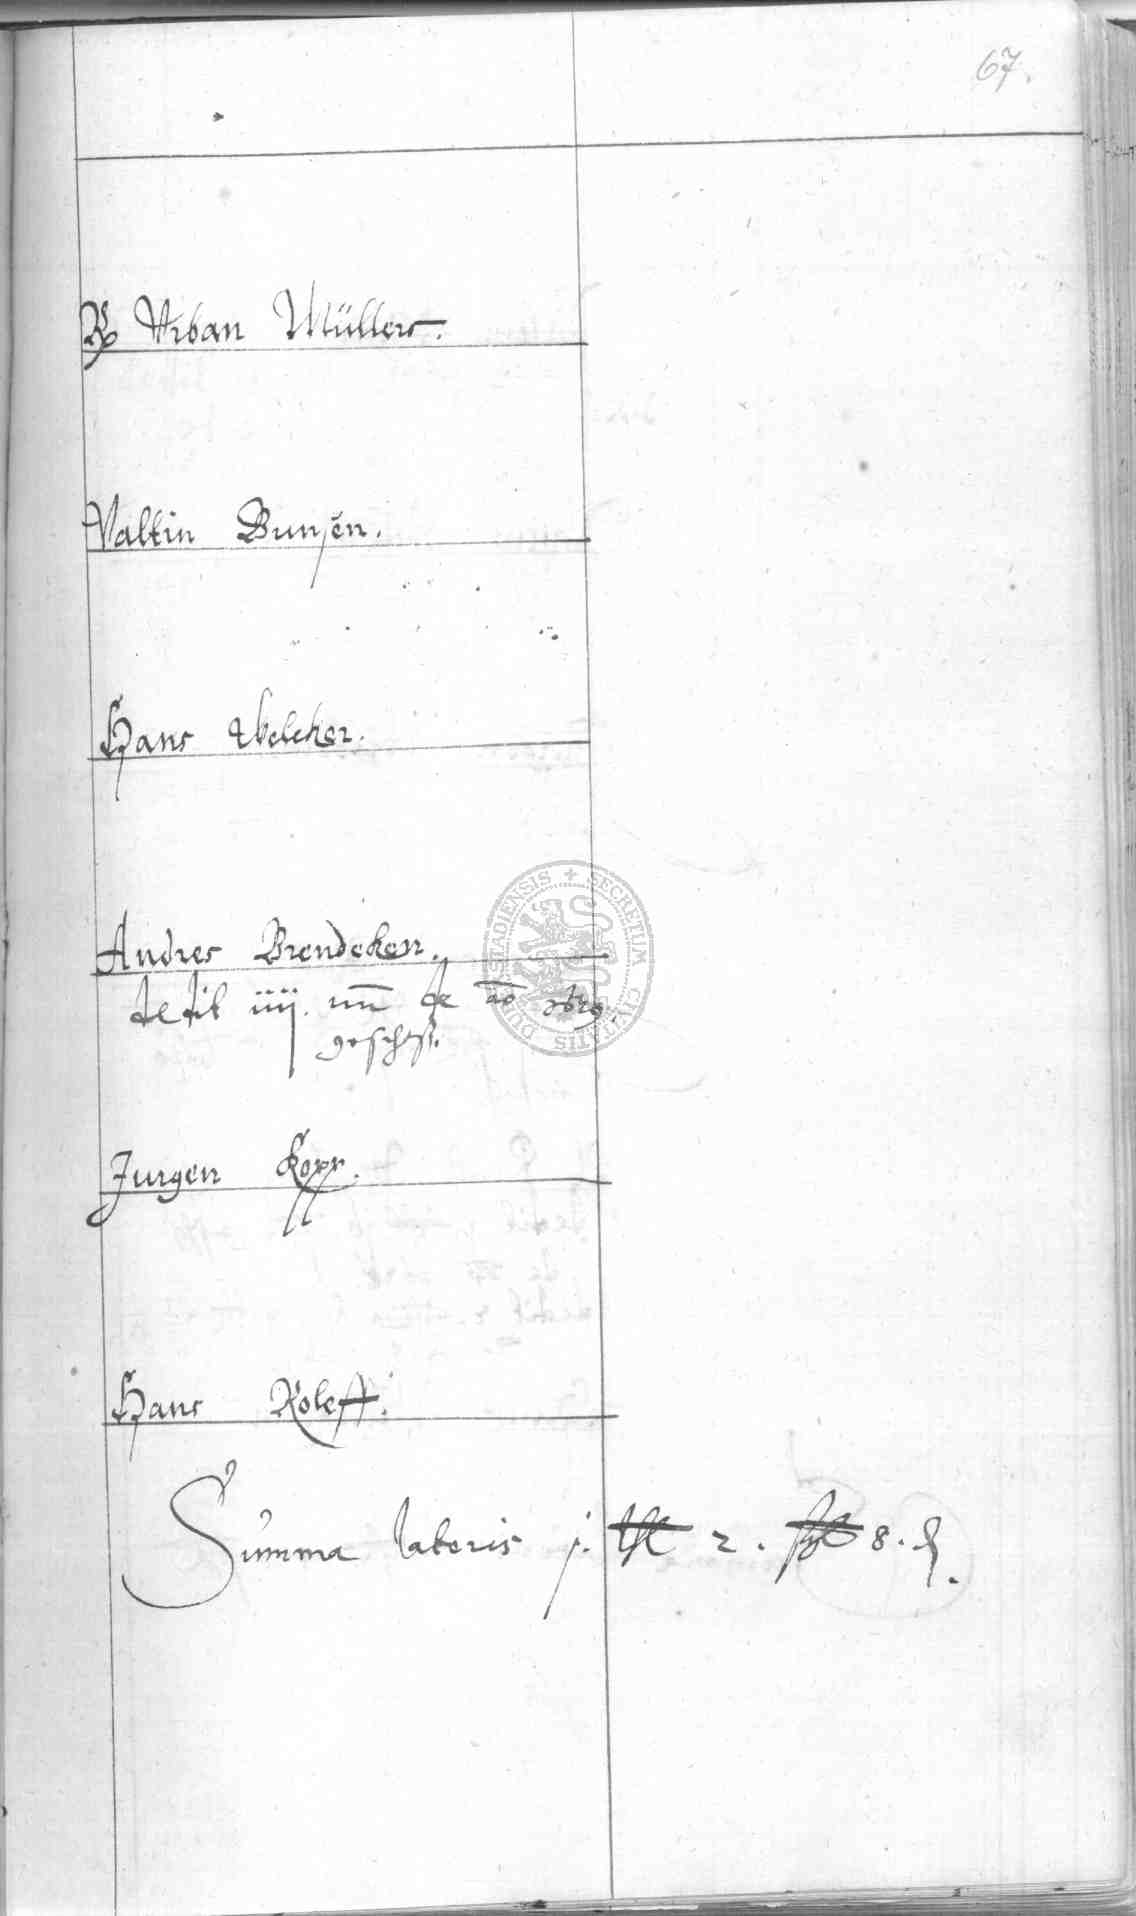 67.
Urban Müllers.
Valtin Bunsen.
Hans Welcker.
Andres Brendeken.
dedit iiij. de ao
Jurgen Kopp.
Hans Roleff.
Summa lateris j. thl 2. ß 8. ₰.
SECRETUM CIVITATIS DUDERSTADIENSIS